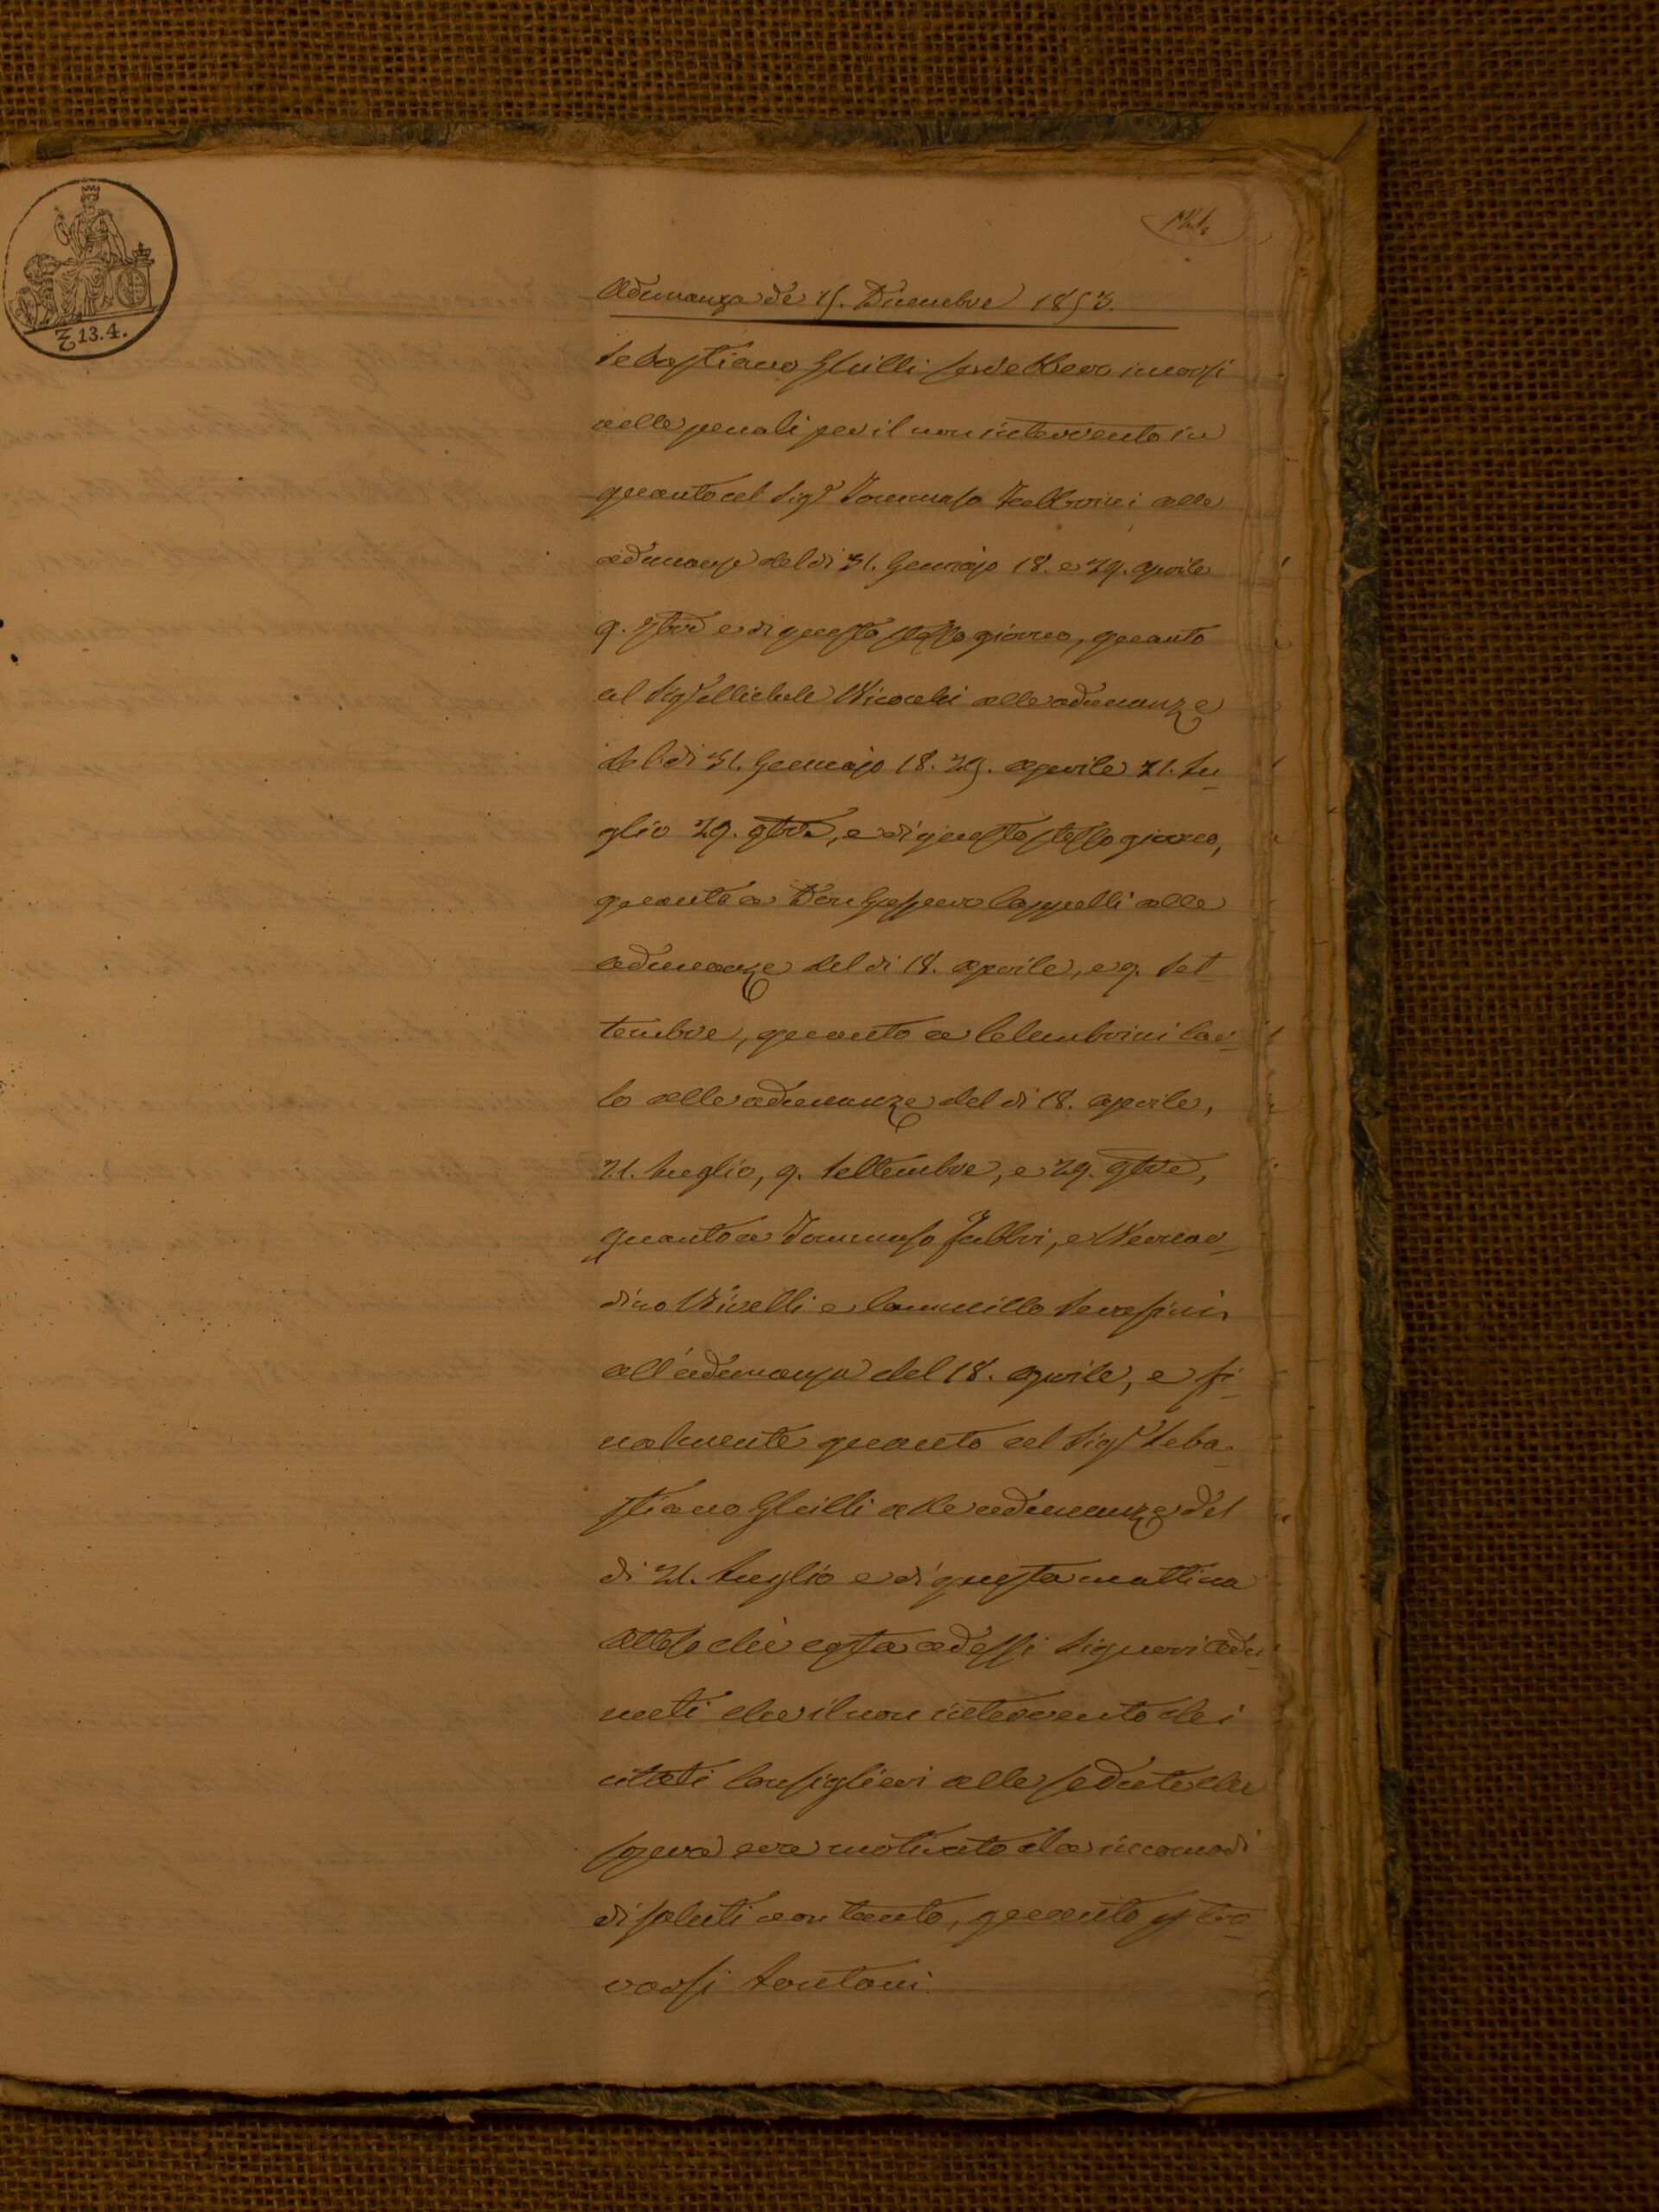 124.
13.4.
Adunanza de 15. Dicembre 1853.
Sebastiano Ghilli sarebbero incorsi
nelle penali per il non intervento in
quanto al Sigr Tommaso Fabbrini alle
adunanze del di 31. Gennajo 18. e 29. aprile
9. 7bre e di questo stesso giorno, quanto
al Sigr Michele alle adunanze
del di 31. Gennajo 18. 29. aprile 21. Lu-
glio 29. 9bre, e di questo stesso giorno,
quanto a Don Gaspero Cappelli alle
adunanze del di 18. aprile, e 9. Set-
tembre, quanto a Celembrini Car-
lo alle adunanze del di 18. aprile,
21. Luglio, 9. Settembre, e 29. 9bre,
quanto a Tommaso Fabbri, e Bernar-
dino e Cammillo Serafini
all'adunanza del 18. aprile, e fi-
nalmente quanto al Sigr Seba-
stiano Ghilli alle adunanze del
di 21. Luglio e di questa mattina
Atteso che costa ad essi Signori Adu-
nati che il non intervento dei
citati Consiglieri alle sedute che
sopra era motivato da incomodi
di salute non tanto, quanto tro-
varsi lontani.